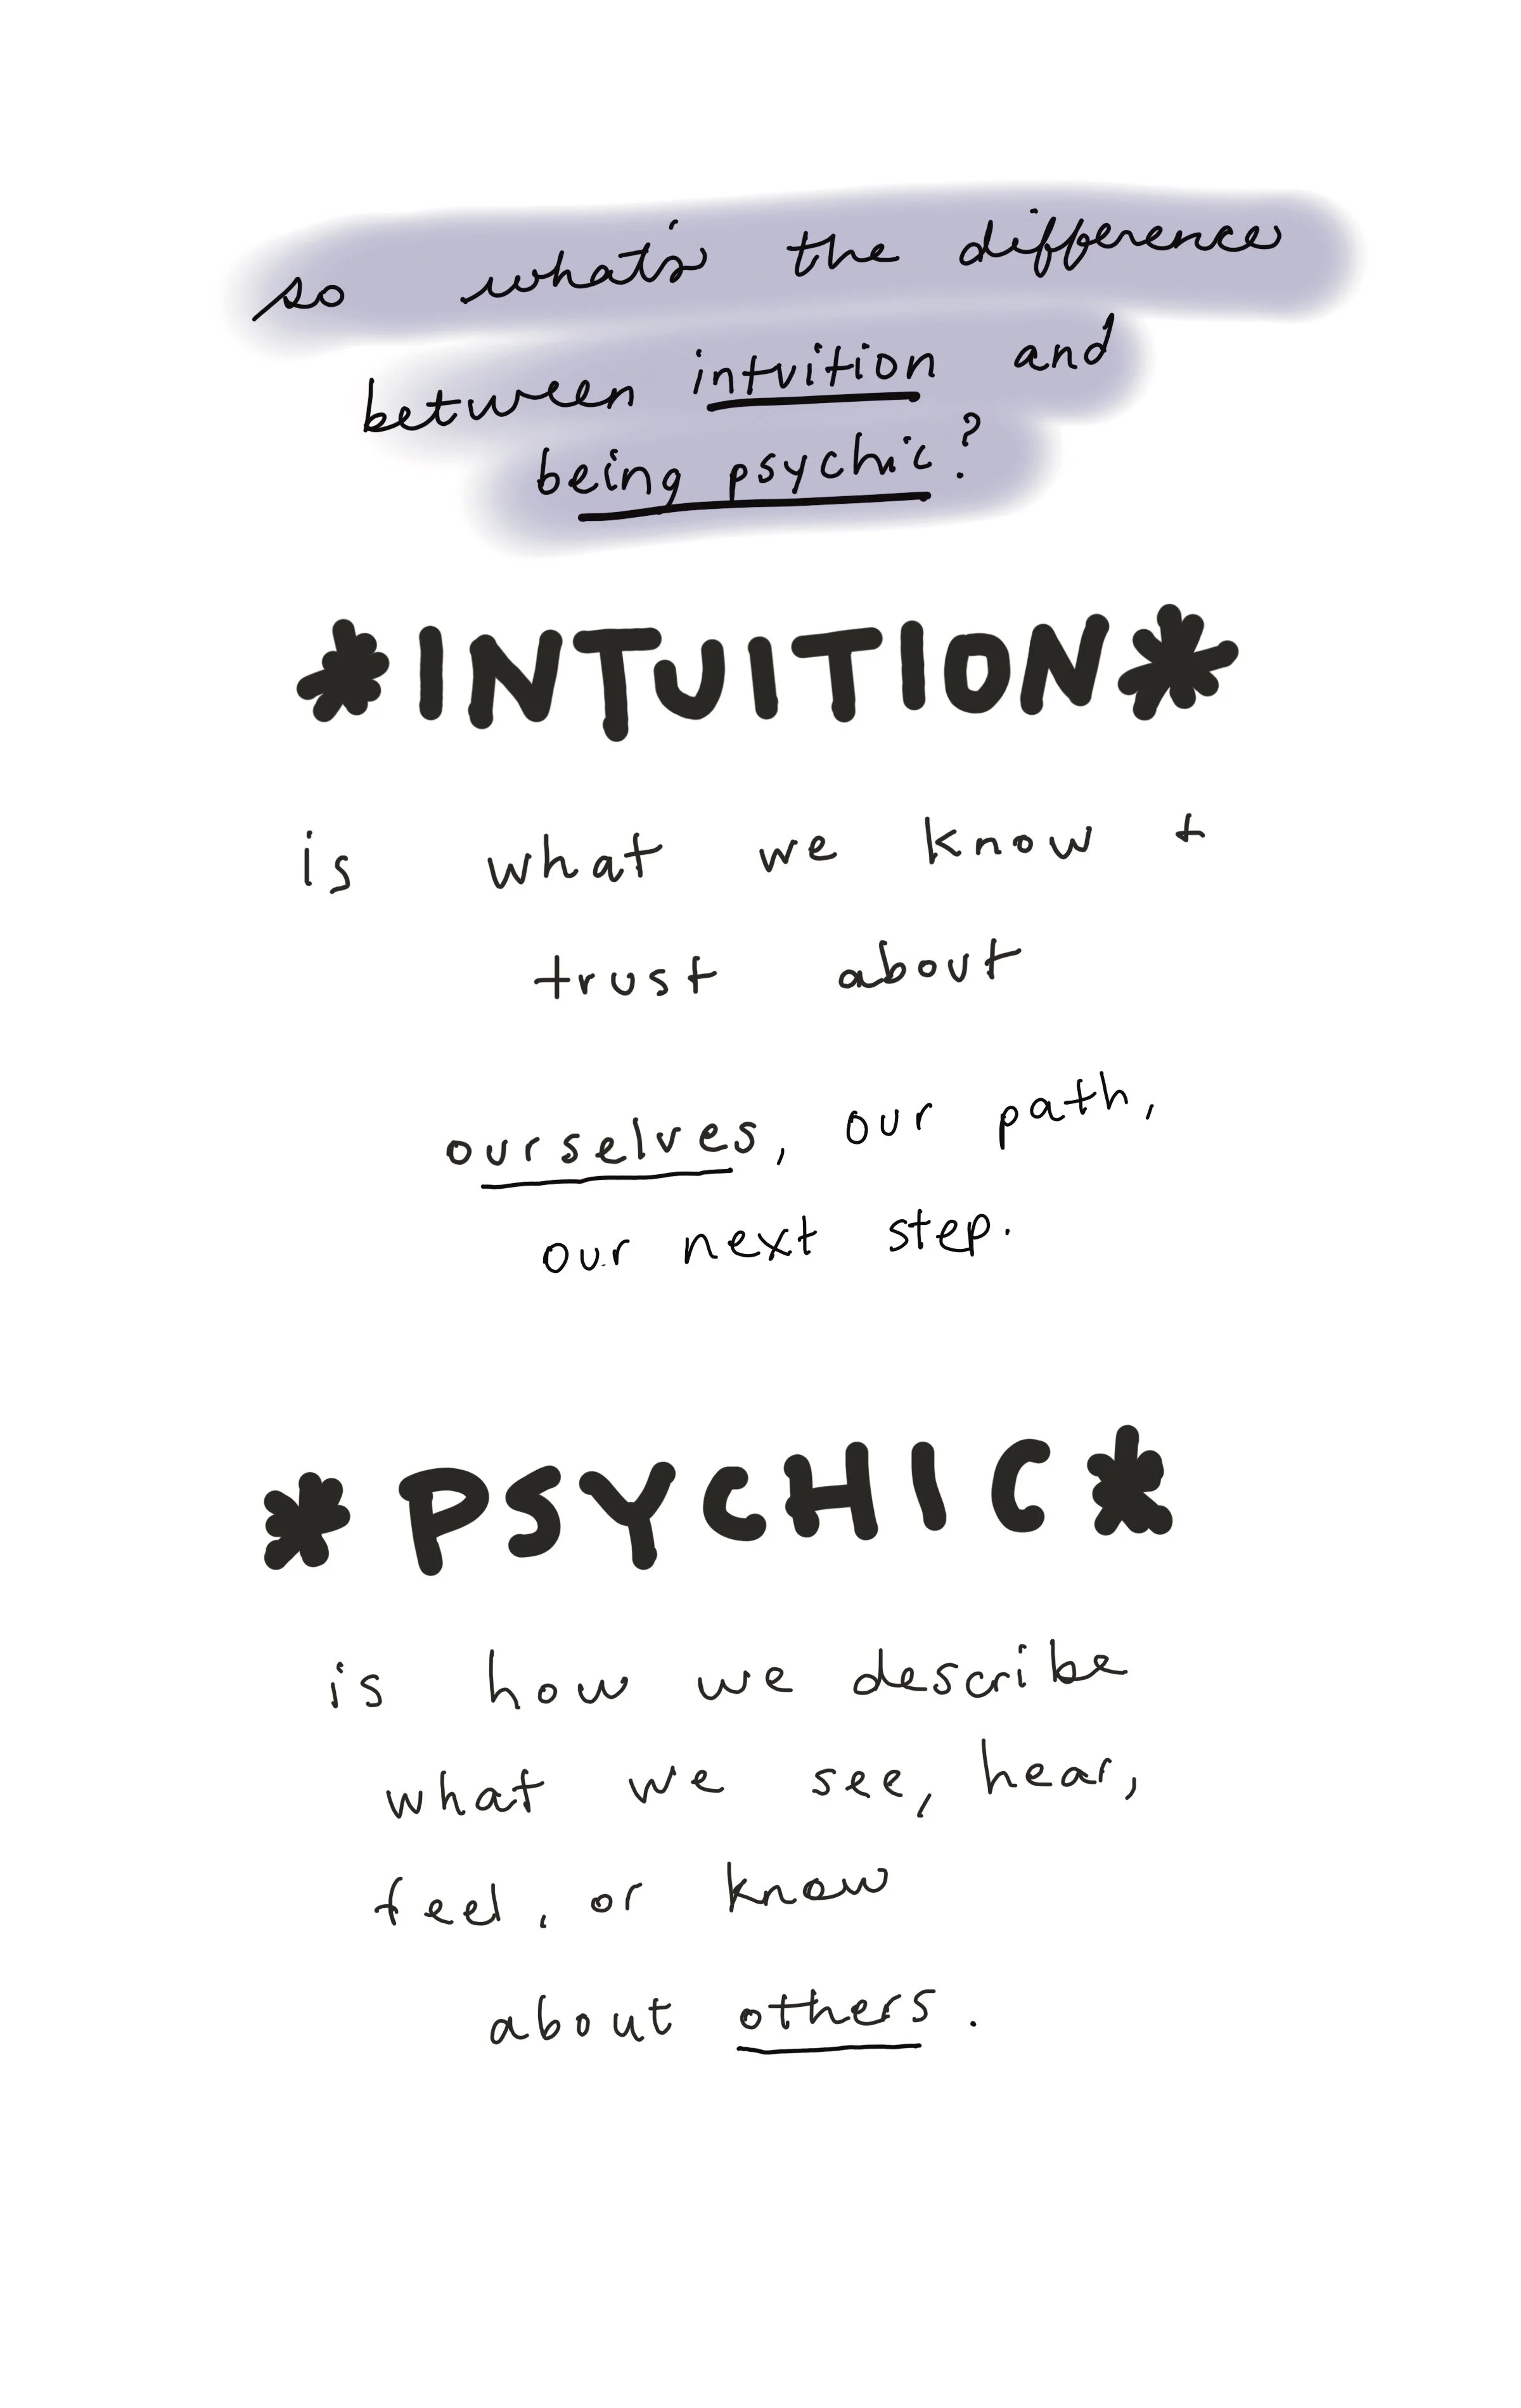 so what's the difference
between intuition and
being psychic?
*INTUITION*
is what we know +
trust about
ourselves, our path,
our next step.
*PSYCHIC*
is how we describe
what we see, hear,
feel, or know
about others.